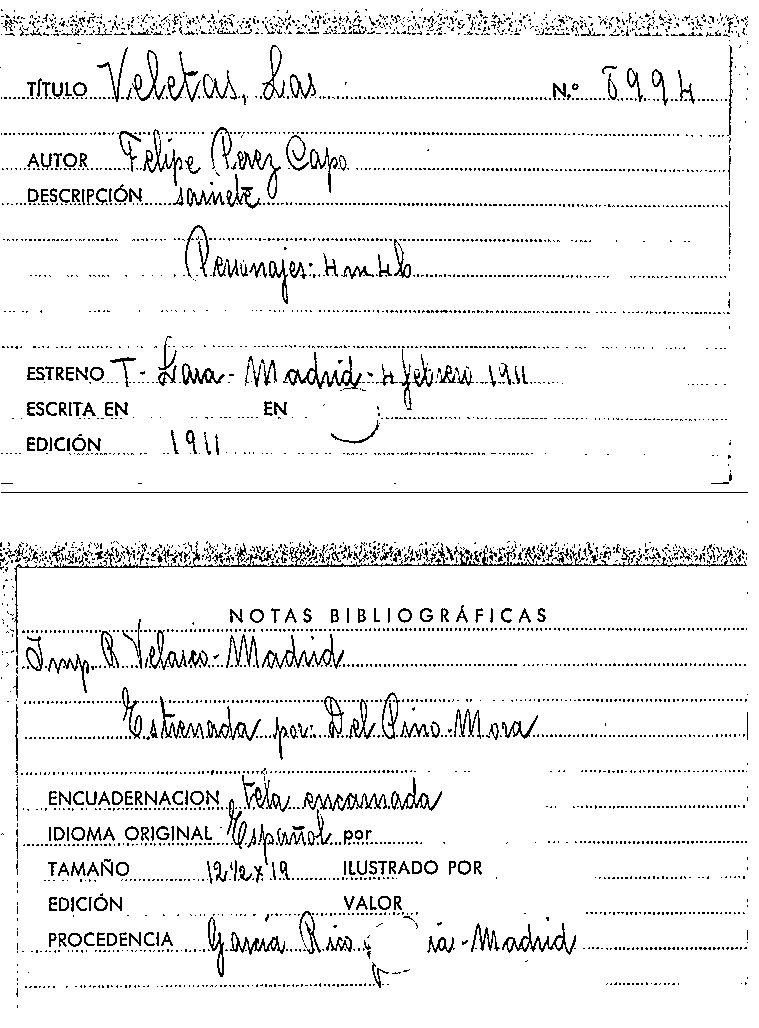 TÍTULO Veletas, Las N.º 8994
AUTOR Felipe Pérez Capo
DESCRIPCIÓN sainete
Personajes: 4 m 4 h
ESTRENO T - Lara - Madrid - 4 febrero 1911
ESCRITA EN EN
EDICIÓN 1911
NOTAS BIBLIOGRÁFICAS
Imp. R Velasco - Madrid
Estrenada por: Del Pino - Mora
ENCUADERNACION tela encarnada
IDIOMA ORIGINAL Español por
TAMAÑO 12 1/2 x 19 ILUSTRADO POR
EDICIÓN VALOR
PROCEDENCIA García Rico ia - Madrid